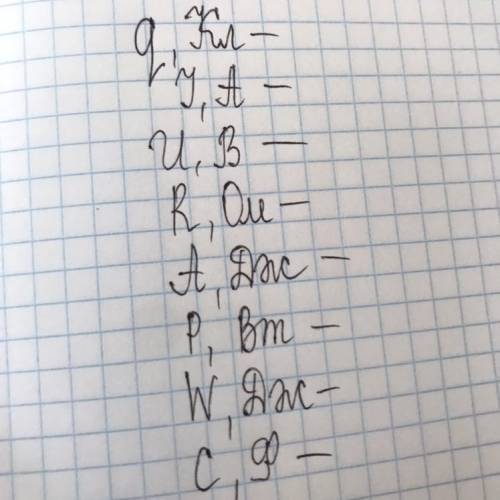 q, Кл –
I, А –
U, В –
R, Ом –
А, Дж –
P, Вт –
W, Дж –
C, Ф –